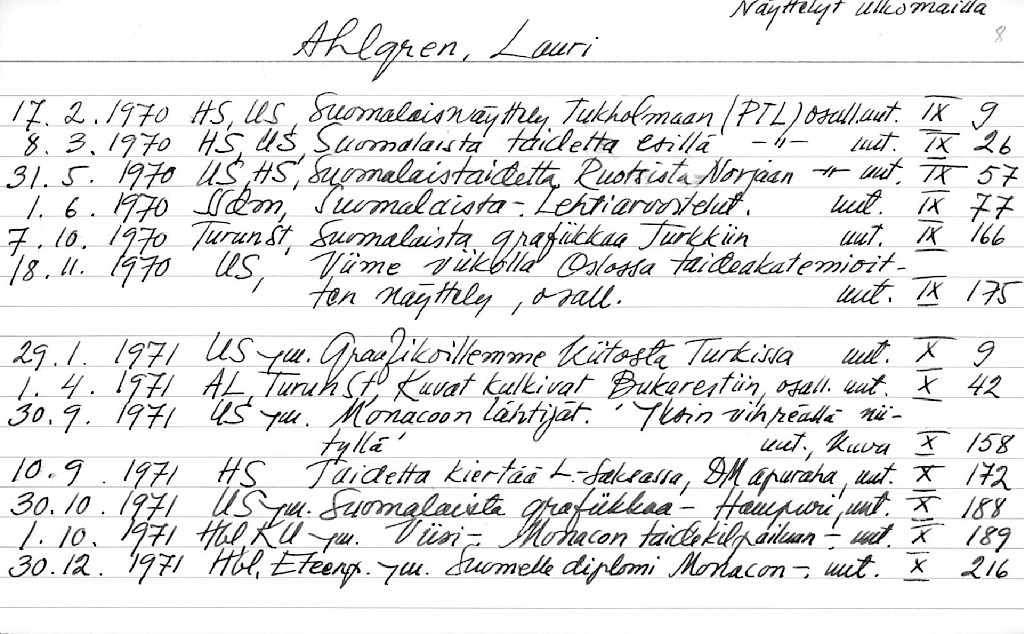 Näyttelyt ulkomailla
8
Ahlgren, Lauri
17. 2. 1970 HS, US, Suomalaisnäyttely Tukholmaan (PTL) osall. uut. IX 9
8. 3. 1970 HS, US, Suomalaista taidetta esillä -"- uut. IX 26
31. 5. 1970 US, HS, Suomalaistaidetta Ruotsista Norjaan -"- uut. IX 57
1. 6. 1970 SSdm, Suomalaista-. Lehtiarvostelut. uut. IX 77
7. 10. 1970 TurunSt, Suomalaista grafiikkaa Turkkiin uut. IX 166
18. 11. 1970 US, Viime viikolla Oslossa taideakatemioit-
ten näyttely, osall. uut. IX 175
29. 1. 1971 US ym. Graafikoillemme kiitosta Turkissa uut. X 9
1. 4. 1971 AL, TurunSt, Kuvat kulkivat Bukarestiin, osall. uut. X 42
30. 9. 1971 US ym. Monacoon lähtijät. 'Yksin vihreällä nii-
tyllä' uut., kuva X 158
10. 9. 1971 HS Taidetta kiertää L-Saksassa, DM apuraha, uut. X 172
30. 10. 1971 US ym. Suomalaista grafiikkaa - Hampuri, uut. X 188
1. 10. 1971 Hbl KU ym. Viisi-. Monacon taidekilpailuun-. uut. X 189
30. 12. 1971 Hbl, Eteenp. ym. Suomelle diplomi Monacon-. uut. X 216